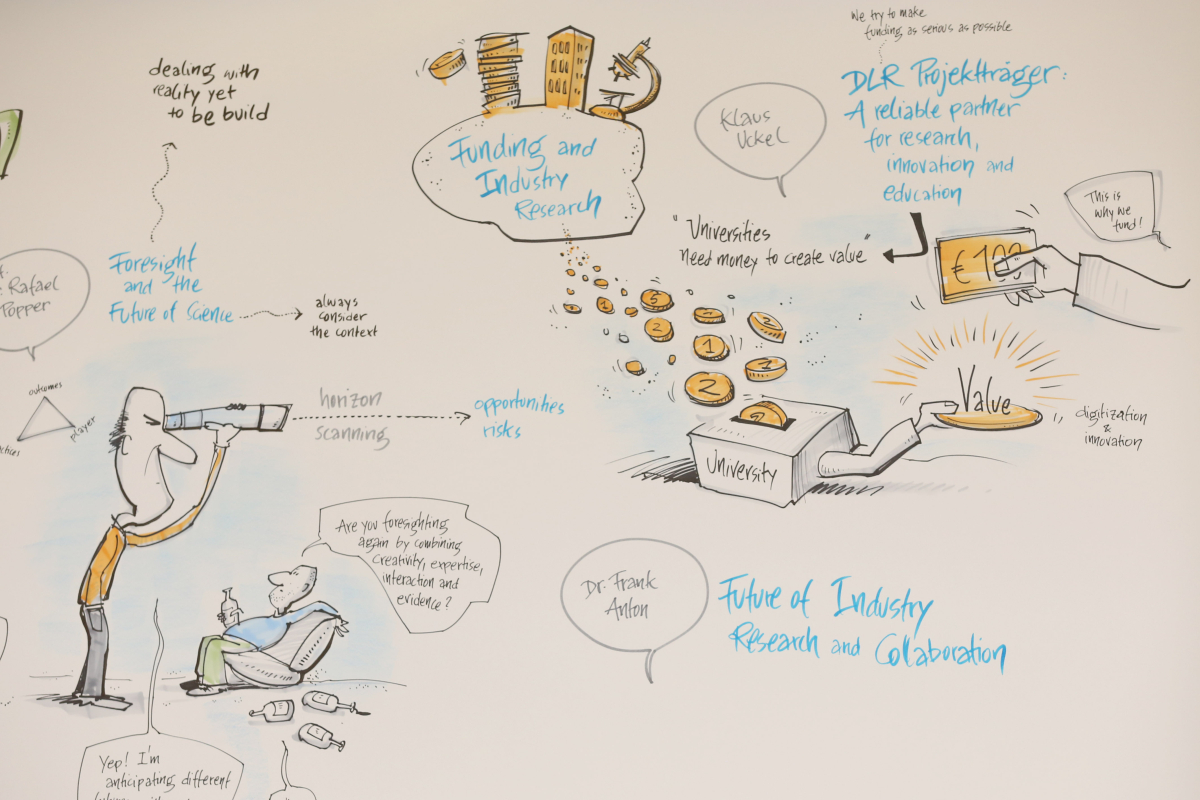 dealing with
reality yet
to be build
Foresight
and the
Future of Science
always
consider
the context
Rafael
Popper
outcomes
player
horizon
scanning
opportunities
risks
Are you foresighting
again by combining
creativity, expertise,
interaction and
evidence?
Yep! I'm
anticipating different
Funding and
Industry
Research
We try to make
funding as serious as possible
Klaus
Uckel
DLR Projektträger:
A reliable partner
for research,
innovation and
education
"Universities
need money to create value"
€ 100
This is
why we
fund!
5
1
2
2
1
1
2
University
Value
digitization
&
innovation
Dr. Frank
Anton
Future of Industry
Research and Collaboration